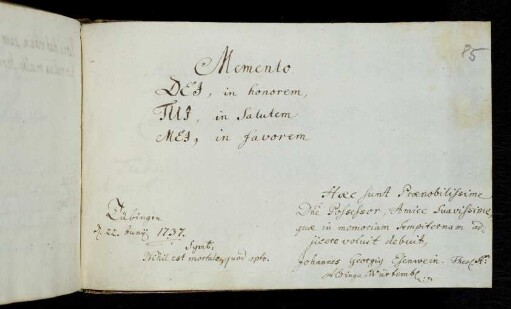 85
Memento
DEI, in honorem,
TUI, in Salutem
MEI, in favorem
Tübingen
d. 22. Junij 1737.
Symb:
Nihil est mortale, quod opto.
Hæc sunt Prænobilissime
Dñe Possessor, Amice Suavissime,
quæ in memoriam sempiternam ad-
jicere voluit debuit,
Johannes Georgius Esenwein. Theol.
Würtemb.